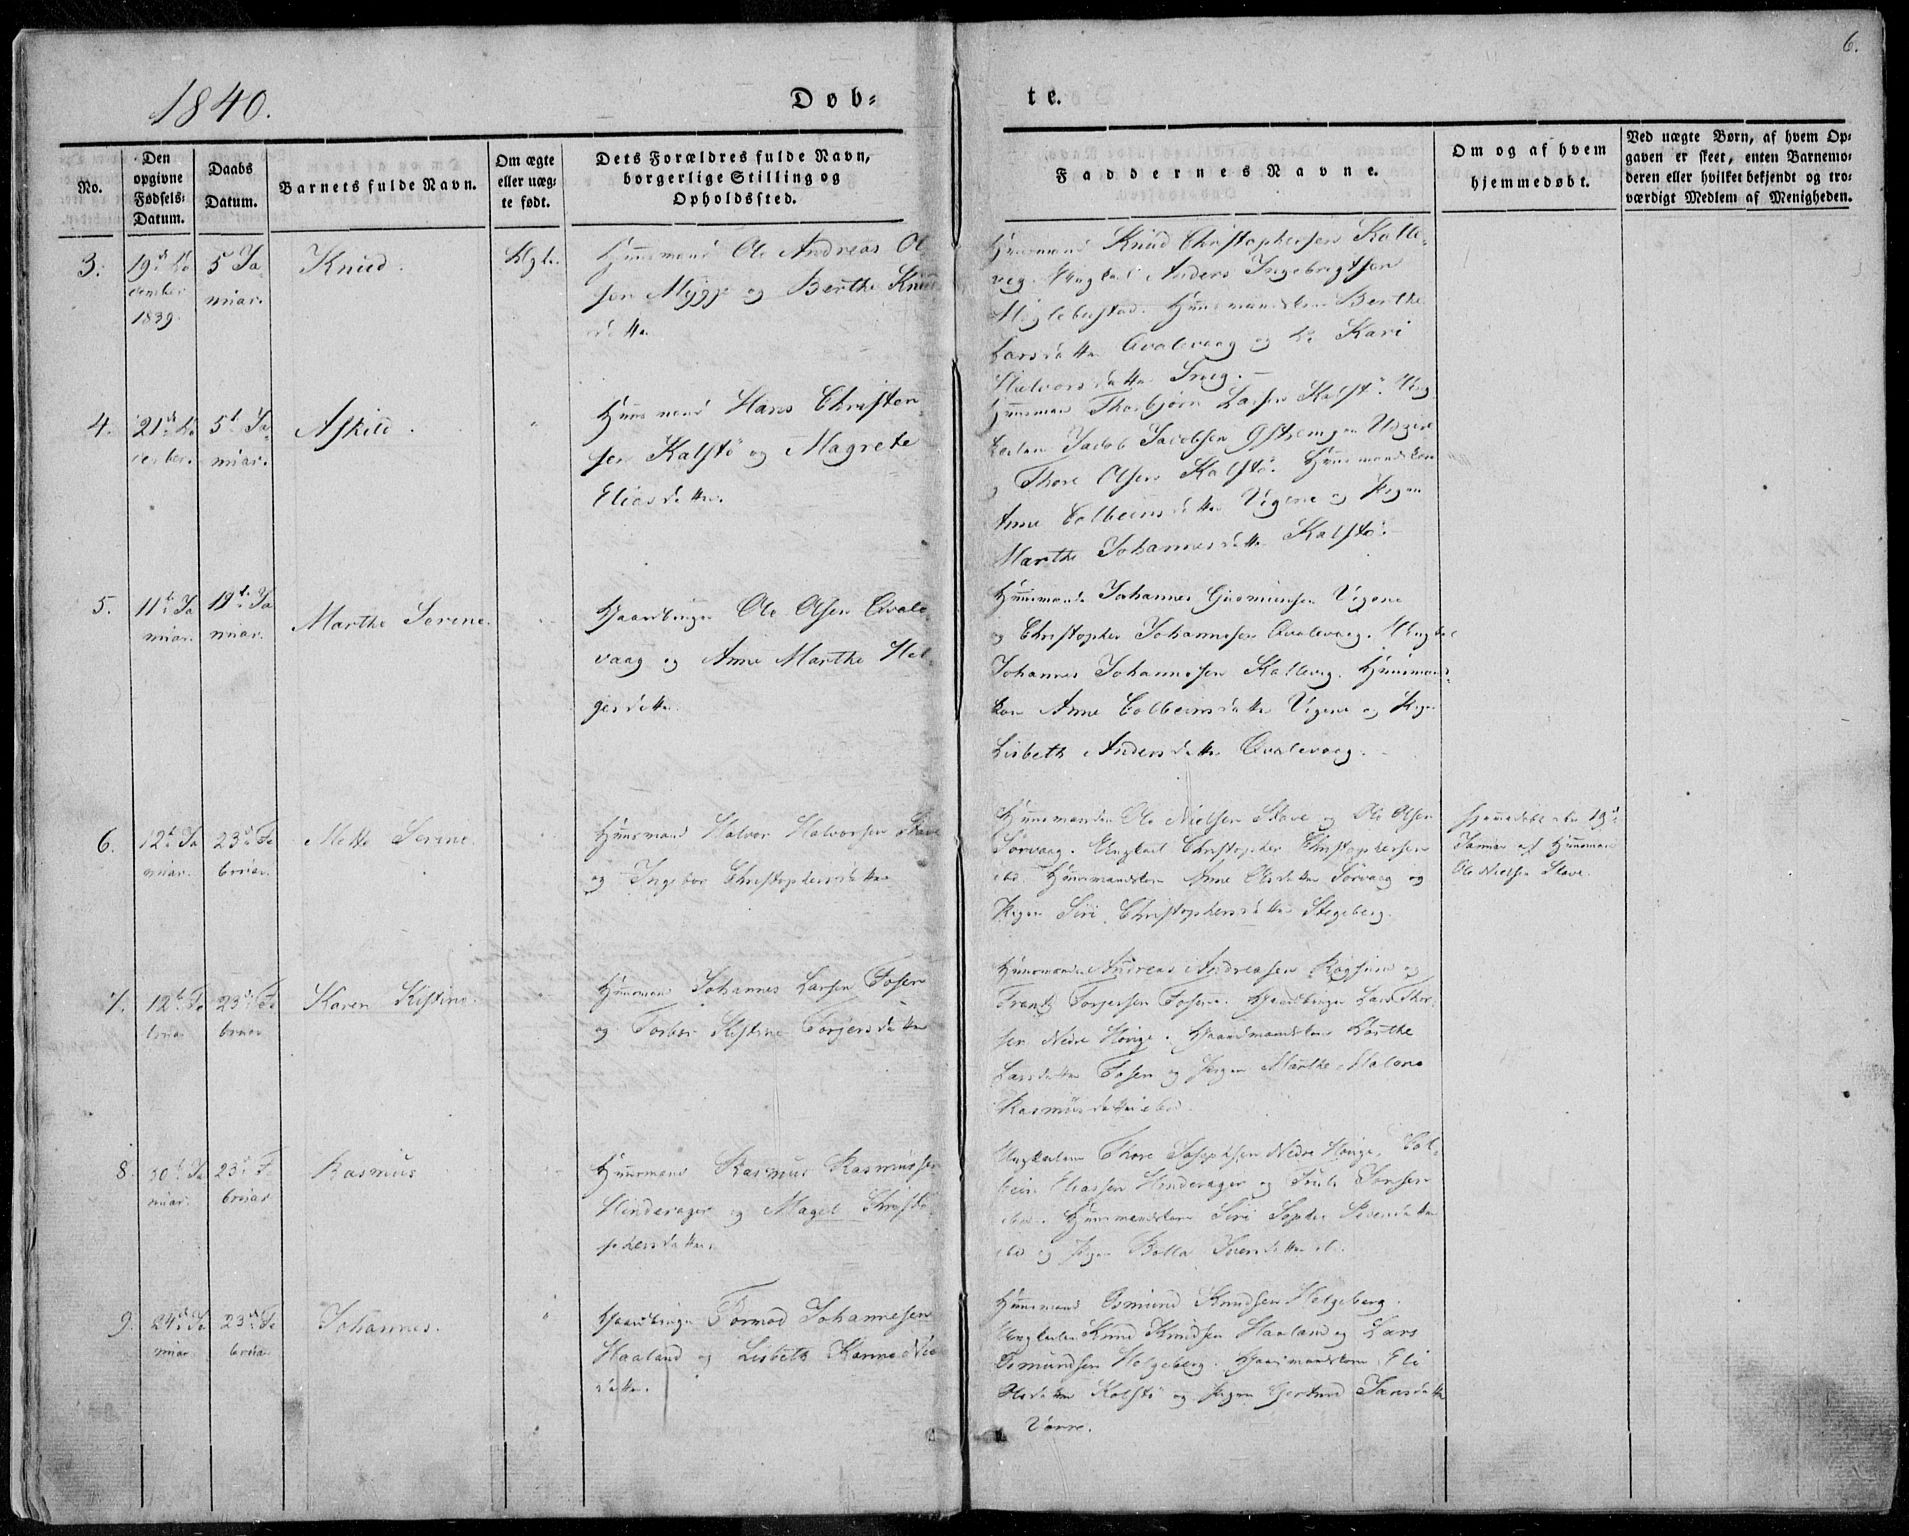 6.
1840.
Døb-
te.
No.
Den opgivne Fødsels-Datum.
Daabs Datum.
Barnets fulde Navn.
Om ægte eller uæg-te født.
Dets Forældres fulde Navn, borgerlige Stilling og Opholdssted.
Faddernes Navne.
Om og af hvem hjemmedøbt.
Ved uægte Børn, af hvem Op-gaven er skeet, enten Barnemo-deren eller hvilket bekjendt og tro-værdigt Medlem af Menigheden.
3.
19de De
cember
1839.
5 Ja
nuar.
Knud.
Ægte.
Huusmand Ole Andreas Ol
sen Mygge og Berthe Knuds
datter
Huusmand Knud Christophersen Kalle-
veg. Ungkarl Anders Ingebregtsen
Berthe
Larsdatter Qvalevaag og Kari
Halvorsdatter
4.
21de De
cember.
5te Ja
nuar.
Huusmand Hans Christen
sen Kalstø og Magrete
Eliasdatter.
Huusmand Thorbjørn Larsen Kalstø. Ung
karlen Jacob Jacobsen
og Thore Olsen Kalstø. Huusmandskone
Anne Colbeinsdatter Vigene og Pigen
Marthe Johannesdatter Kalstø.
5.
11te Ja
nuar.
19de Ja
nuar.
Marthe Serine.
Gaardbruger Ole Olsen Qvale
vaag og Anne Marthe Hel
gesdatter.
Huusmand Johannes Vigene
og Christopher Johannesen Qvalevaag. Ungkarl
Johannes Johannesen Kalleveg. Huusmands
kone Anne Colbeinsdatter Vigene og Pigen
Lisbeth Andersdatter Qvalevaag.
6.
12te Ja
nuar.
23de Fe
bruar.
Mette Serine.
Huusmand Halvor Halvorsen Stave
og Ingebor Christophersdatter
Huusmanden Ole Nielsen Stave og Ole Olsen
Sørvaag. Ungkarl Christopher Christophersen
ibd. Huusmandskone Anne Olsdatter Sørvaag og
Pigen Siri Christophersdatter Stegeberg.
Hjemmedøbt den 19de
Januar af Huusmand
Ole Nielsen Stave.
7.
12te Fe
bruar
23de Fe
bruar
Karen Kistine.
Huusmand Johannes Larsen Fosen
og Torbor Kistine Torjersdatter
Huusmand Andreas Andreasen og
Torjersen Fosen. Gaardbruger Lars Thor
sen Nedre Hinge. Gaardmandskone Dorthe
Larsdatter Fosen og Pigen Marthe Malene
Rasmusdatter ibd.
8.
30te Ja
nuar.
23de Fe
bruar
Rasmus
Huusmand Rasmus Rasmussen
Hinderager og Magel Christo
phersdatter.
Ungkarlen Thore Josephsen Nedre Hinge, Col-
bein Eliassen Hinderager og Jonsen
ibd. Huusmandskone Siri Sophie
ibd og Pigen
9.
24de Ja
nuar.
23de Fe
bruar
Johannes.
Gaardbruger Tormod Johannesen
Haaland og Lisbeth Karine Niels
datter.
Huusmand Osmund Knudsen Helgeberg.
Ungkarlen Knud Knudsen Haaland og Lars
Osmundsen Helgeberg. Gaardmandskone Eli
Olsdatter Kalstø og Pigen Gjertrud Jansdatter